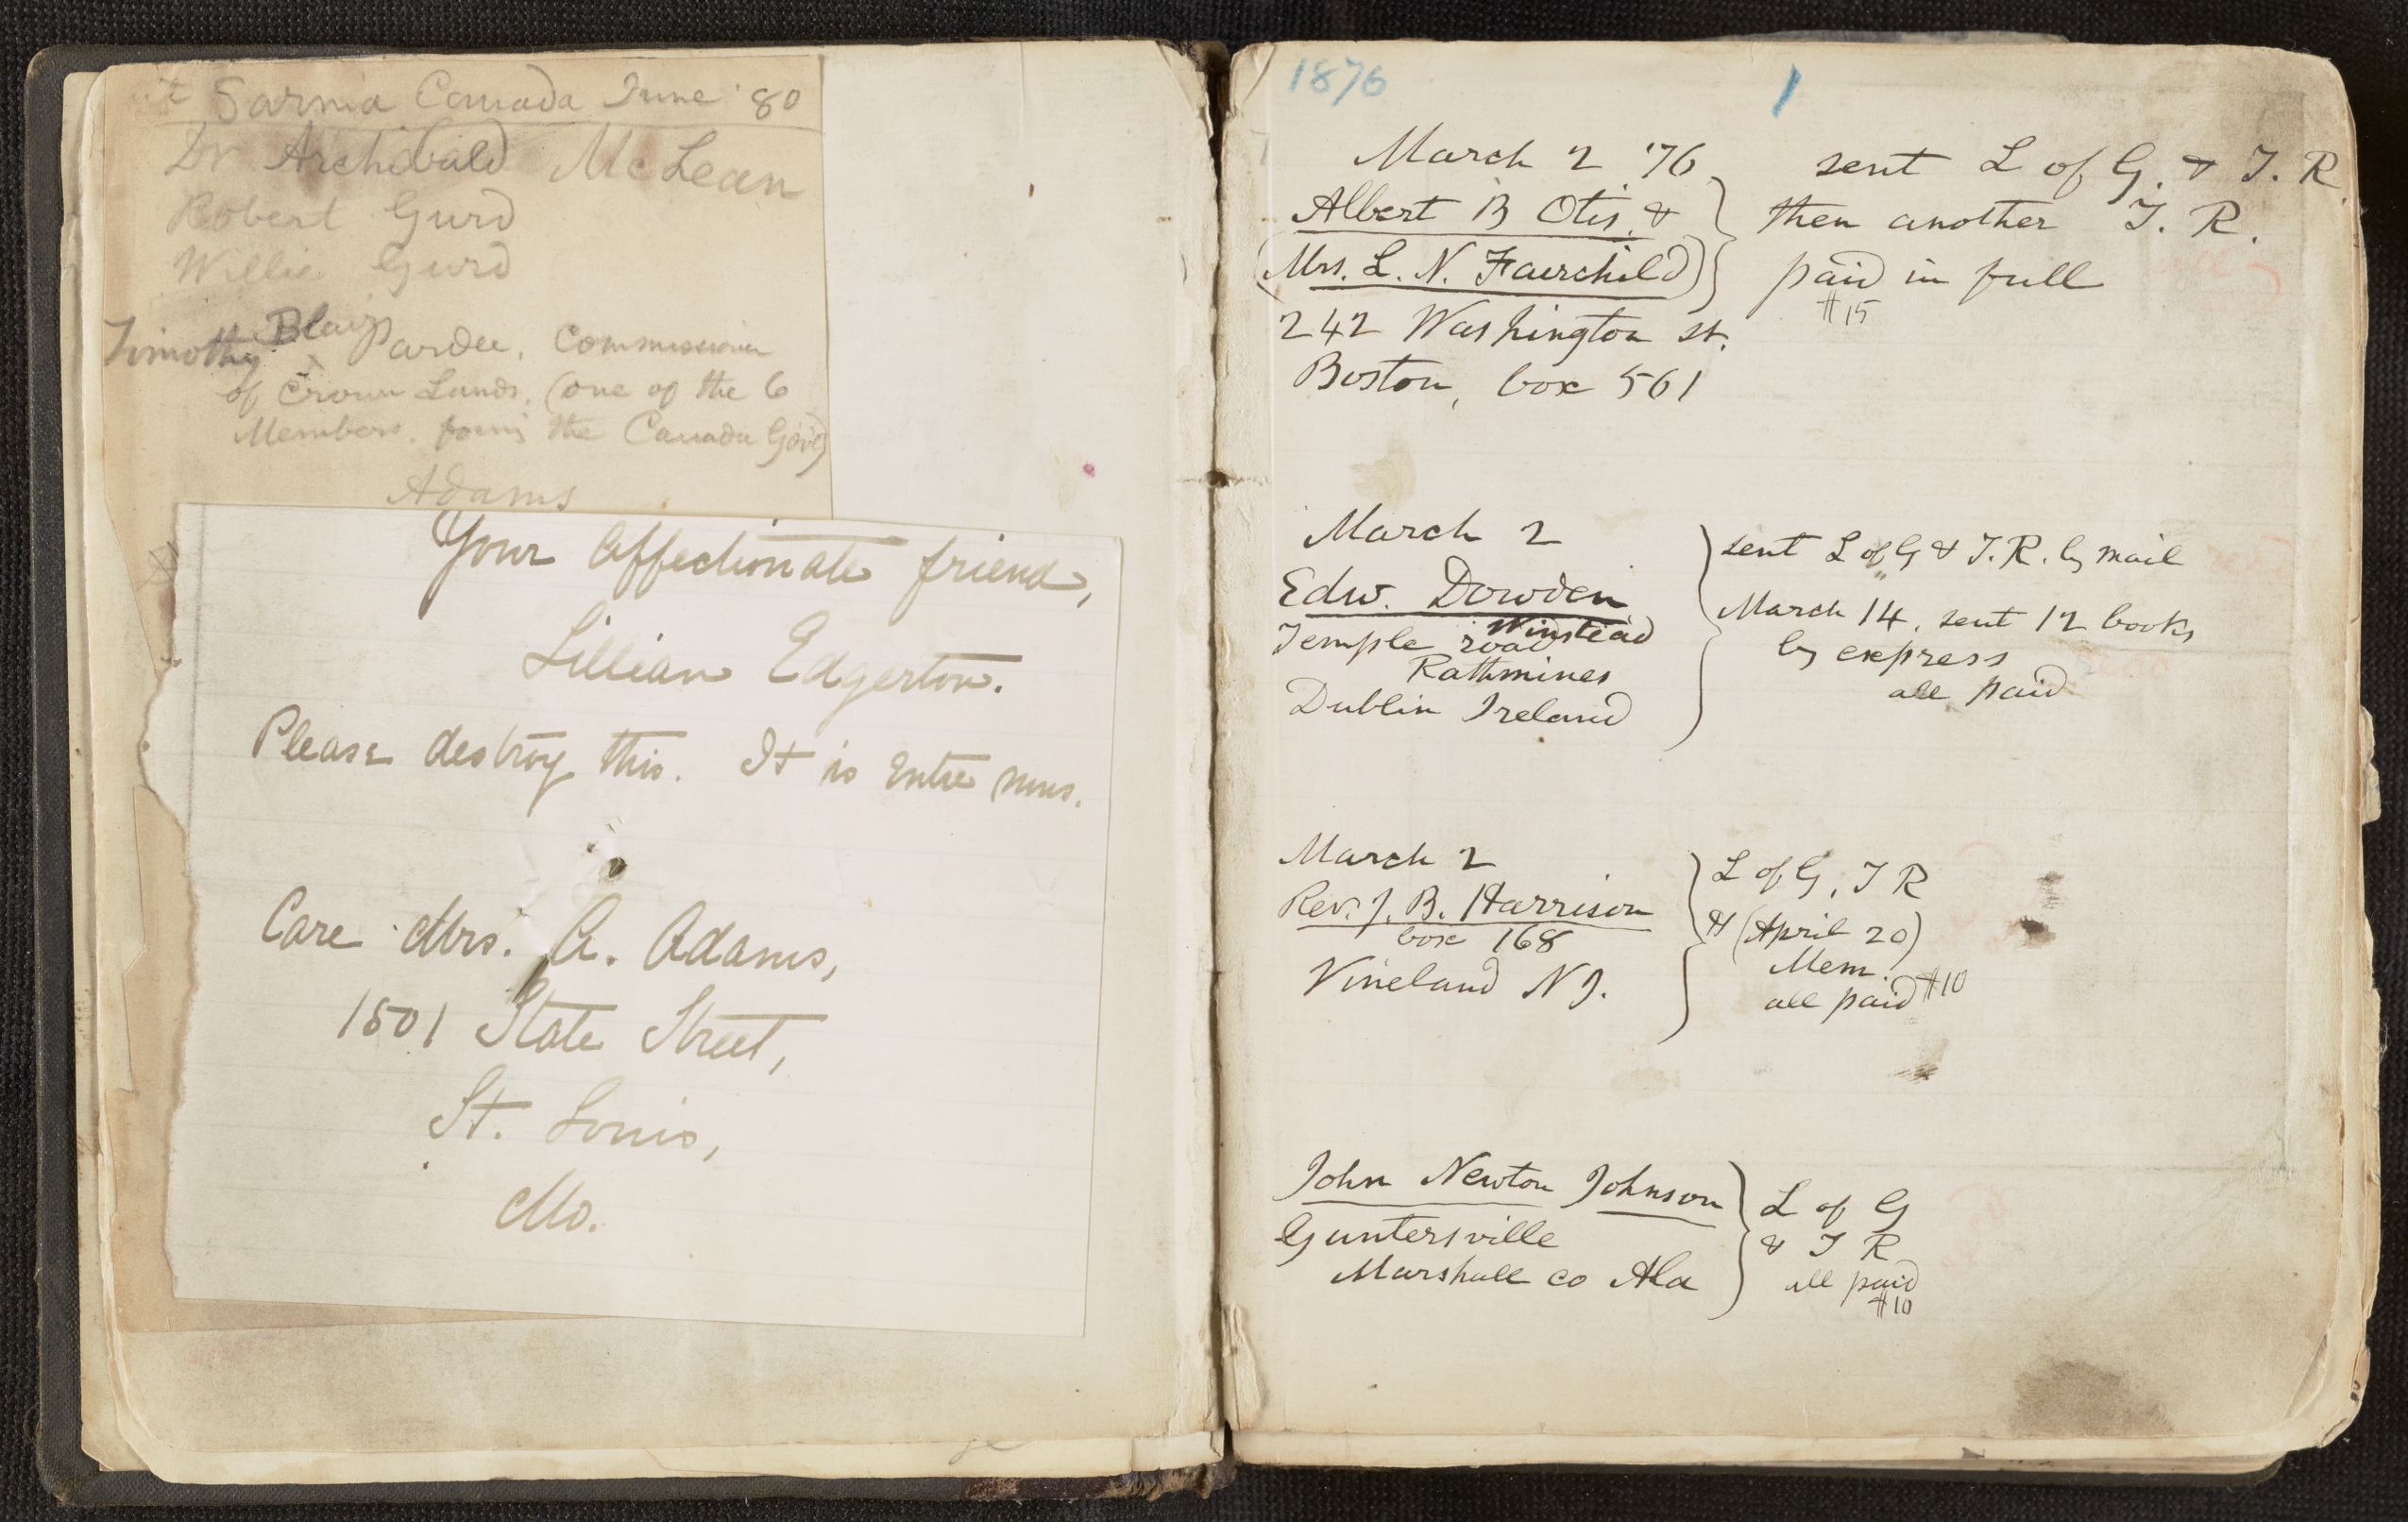 at Sarnia Canada June '80
Dr Archibald McLean
Robert Gurd
Willie Gurd
Blair
Timothy Pardee, Commissioner
of Crown Lands, (one of the 6
Members. form'g the Canada Gov't)
Adams
Your affectionate friend,
Lillian Edgerton.
Please destroy this. It is entre nous.
Care Mrs. A. Adams,
1501 State Street,
St. Louis,
Mo.
1876
1
March 2 '76
Albert B Otis, &
(Mrs. L. N. Fairchild)
242 Washington st.
Boston, box 561
sent L of G. & T. R.
then another T. R.
paid in full
$15
March 2
Edw. Dowden
Winstead
Temple road
Rathmines
Dublin Ireland
sent L of G & T. R. by mail
March 14, sent 12 books
by express
all paid
March 2
Rev. J. B. Harrison
box 168
Vineland N J.
L of G, T R
& (April 20)
Mem.
all paid $10
John Newton Johnson
Guntersville
Marshall co Ala
L of G
& T R
all paid
$10